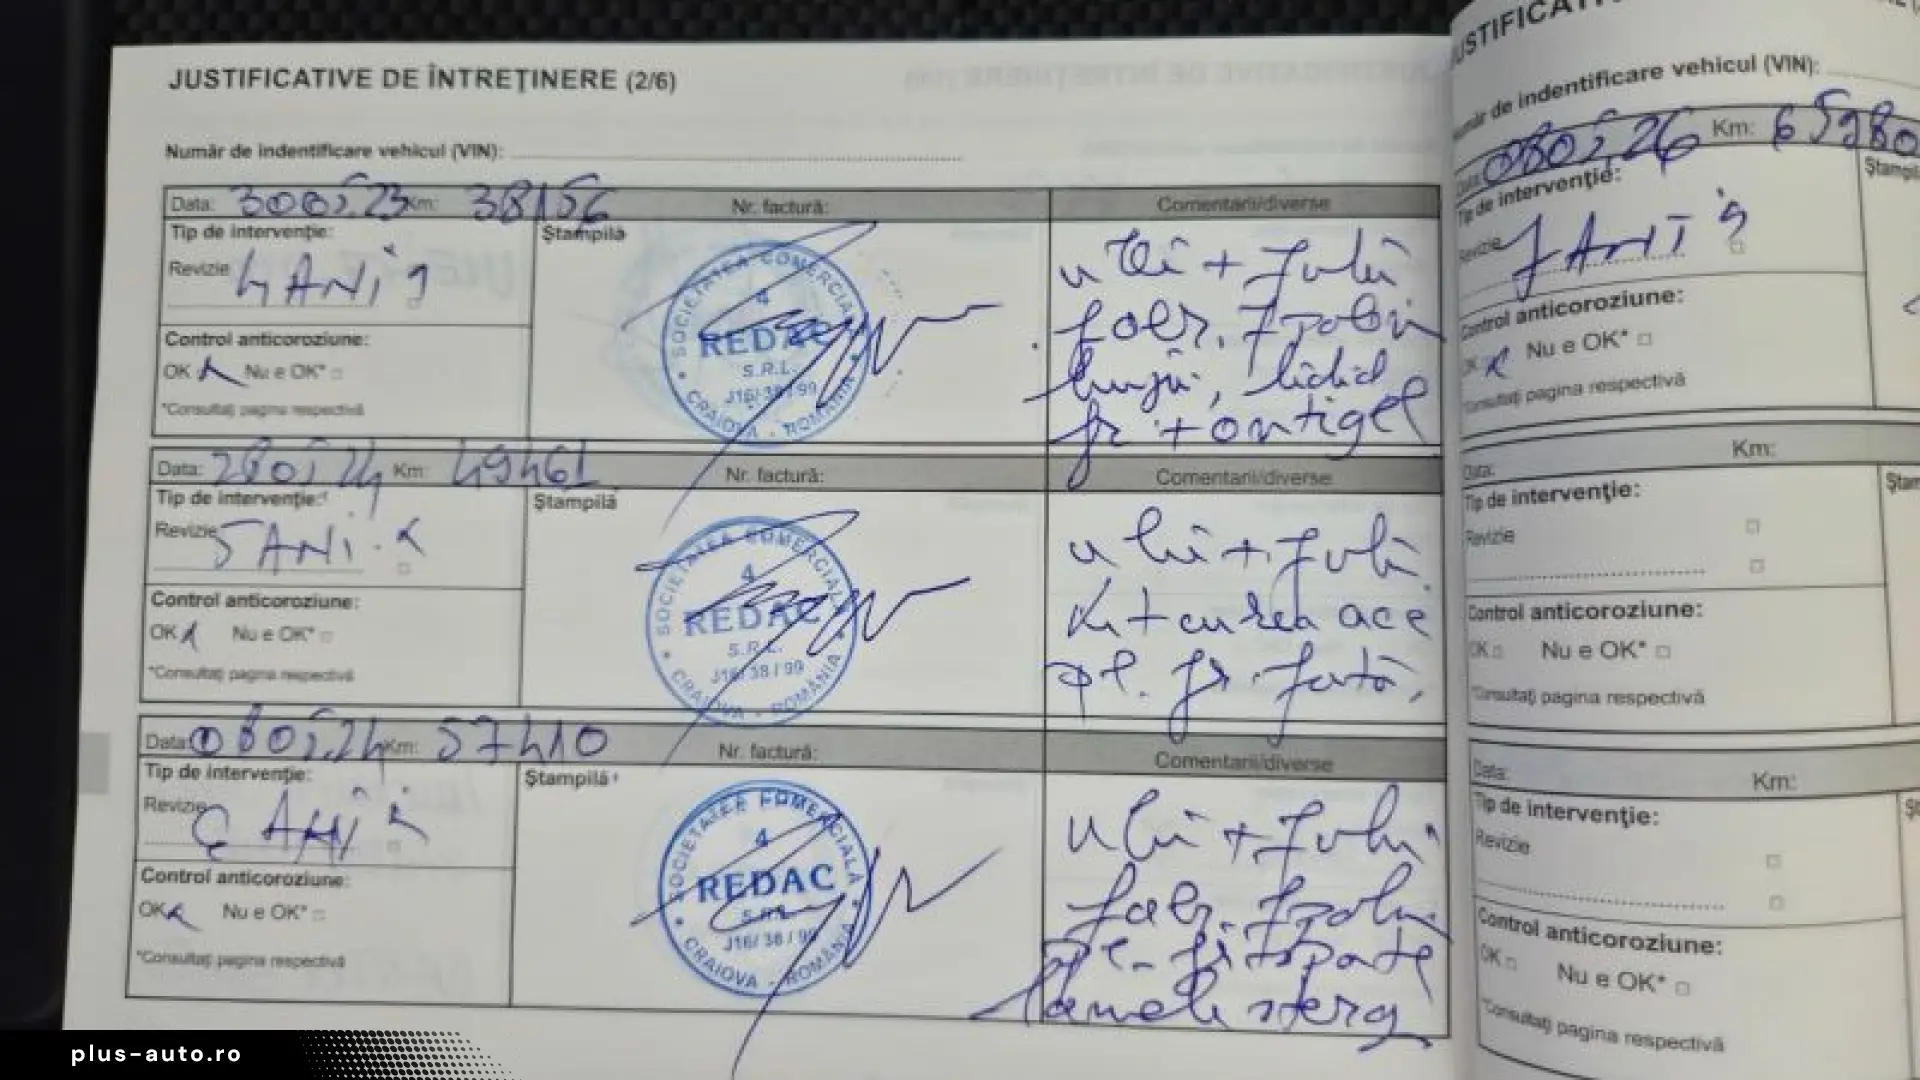 JUSTIFICATIVE DE ÎNTREȚINERE (2/6)
Număr de indentificare vehicul (VIN):
Data: 300523 Km: 38156 Nr. factură: Comentarii/diverse
Tip de intervenție:
Revizie 4 ANi
Ștampilă
SOCIETATEA COMERCIALĂ
4
REDAC
S.R.L.
J16/38/99
CRAIOVA - ROMÂNIA
ulei + filtru
Control anticoroziune:
OK Nu e OK*
*Consultați pagina respectivă
+ antigel
Data: 280524 Km: 49461 Nr. factură: Comentarii/diverse
Tip de intervenție:
Revizie 5 ANi
Ștampilă
SOCIETATEA COMERCIALĂ
4
REDAC
S.R.L.
J16/38/99
CRAIOVA - ROMÂNIA
ulei + filtru
+ curea acc
pl. fr. față,
Control anticoroziune:
OK Nu e OK*
*Consultați pagina respectivă
Data: Km: 57410 Nr. factură: Comentarii/diverse
Tip de intervenție:
Revizie ANi
Ștampilă
SOCIETATEA COMERCIALĂ
4
REDAC
S.R.L.
J16/38/99
CRAIOVA - ROMÂNIA
ulei + filtru
pl. fr spate
lamele sterg
Control anticoroziune:
OK Nu e OK*
*Consultați pagina respectivă
Număr de indentificare vehicul (VIN):
Data: 080526 Km: 65980
Tip de intervenție:
Revizie 7 ANI
Control anticoroziune:
OK Nu e OK*
*Consultați pagina respectivă
Data: Km:
Tip de intervenție:
Revizie
Control anticoroziune:
OK Nu e OK*
*Consultați pagina respectivă
Data: Km:
Tip de intervenție:
Revizie
Control anticoroziune:
OK Nu e OK*
*Consultați pagina respectivă
plus-auto.ro